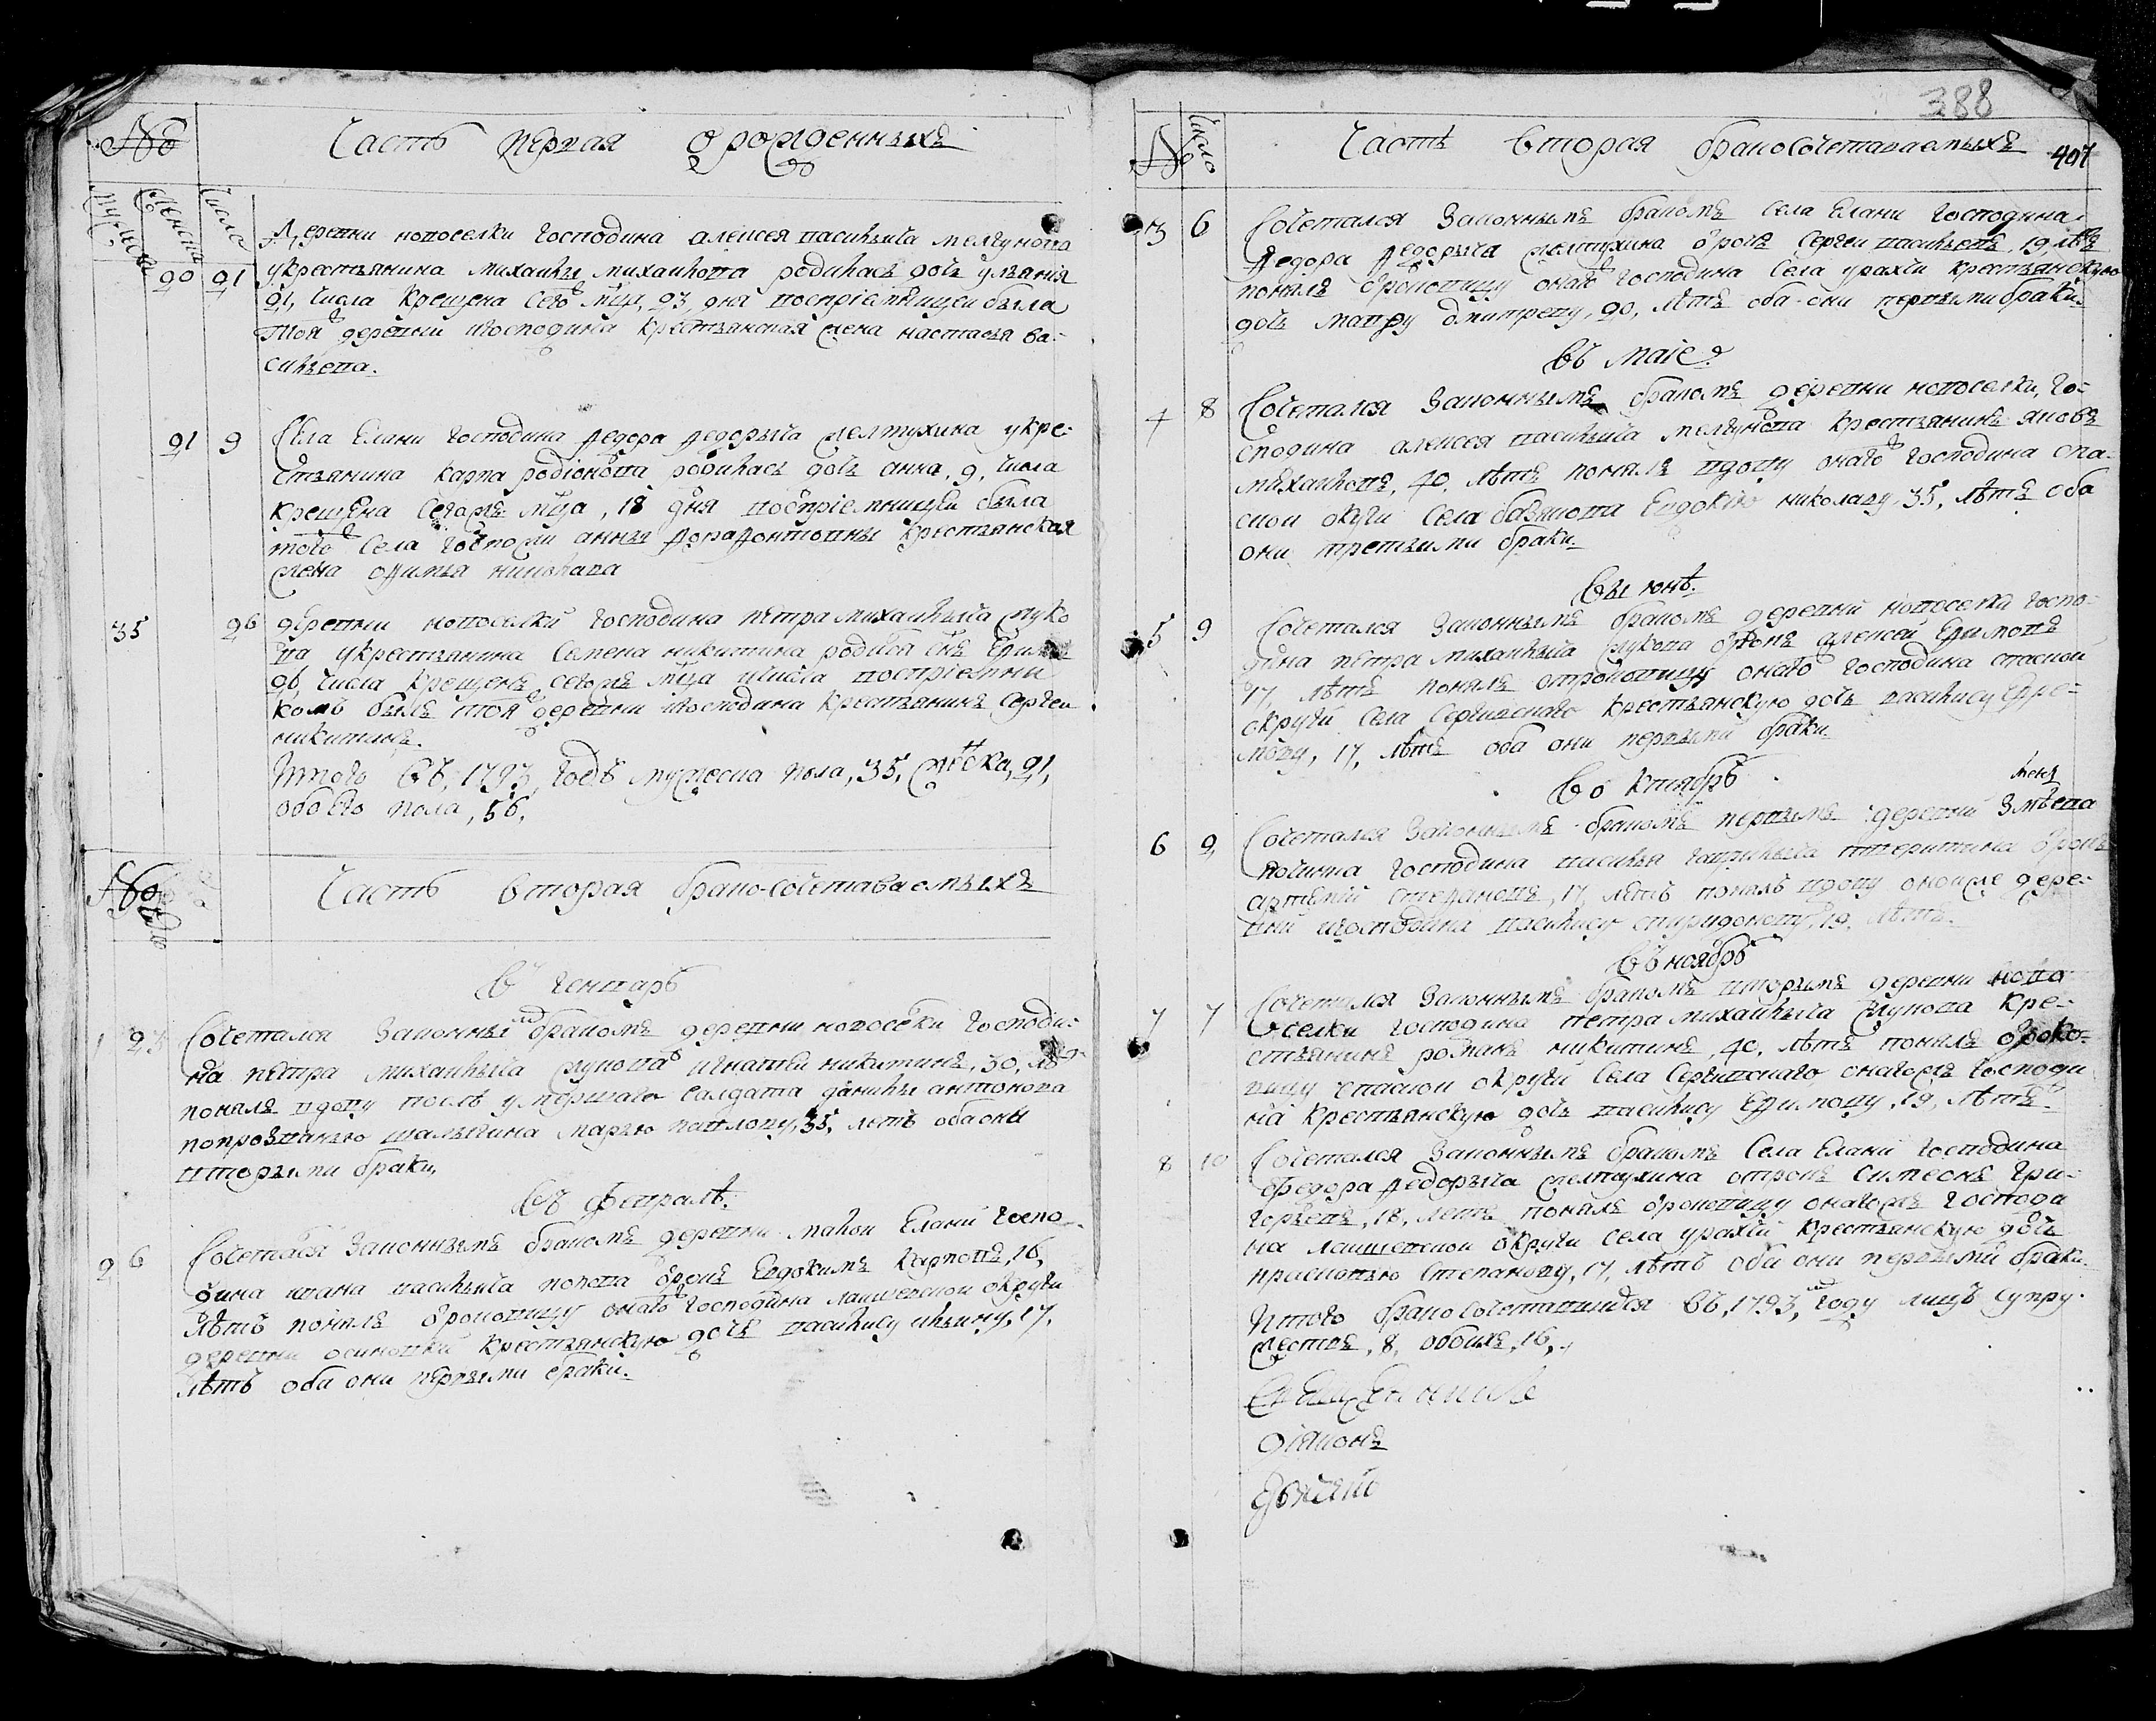 №
Часть первая о рожденныхъ
мужска
женска
число
Деревни новоселки господина алексея васильича мелгунова
20 21 укрестьянина михаилы михаилова родилась дочь ульянія
21, числа крещена сего мца, 23, дня воспріемницеи была
тоя деревни игосподина крестьянская жена настасья ва-
сильева.
21 9 Села Елани господина федора федорыча желтухина укре-
стьянина карпа родіонова родилась дочь анна, 9, числа
крещена сегожъ мца, 18 дня воспріемницеи была
того села госпожи анны крестьянская
жена офимья николава
35 26 деревни новоселки господина петра михаилыча жуко
ва укрестьянина семена никитина родился снъ
26, числа крещенъ сегожъ мца ичисла воспріемни
комъ былъ тоя деревни игосподина крестьянинъ сергеи
никитинъ.
Итого въ, 1793, годъ мужеска пола, 35, женска, 21,
обоего пола, 56,
№
число
Часть вторая брако-сочетаваемыхъ
въ генваръ
1 23 Сочетался законны браномъ деревни новосёлки господи-
на петра михаилыча жукова игнатеи никитинъ, 30, лѣ
понялъ вдову послѣ умершаго салдата данилы антонова
попрозванью шалыгина марью павлову, 35, летъ оба они
вторыми браки,
въ февралѣ:
2 6 Сочетался законнымъ бракомъ деревни малои Елани госпо-
дина ивана васильича попова отрокъ Евдокимъ карповъ, 16,
лѣтъ понялъ отроковицу онаго господина лаишевскои округи
деревни осиновки крестьянскую дочь василису ильину, 17,
лѣтъ оба они первыми браки.
388
№
число
Часть вторая бракосочетаваемыхъ 407
3 6 Сочетался законнымъ бракомъ села Елани господина
федора федорыча желтухина отрокъ сергеи васильевъ, 19, лѣтъ
понялъ отроковицу онаго господина села урахчи крестьянскую
дочь мавру дмитреву, 20, лѣтъ оба они первыми браки.
въ маіе
4 8 Сочетался законнымъ бракомъ деревни новоселки, го-
сподина алексея васильича мелгунова крестьянинъ яковъ
михаиловъ, 40, лѣтъ понялъ вдову онаго господина спа-
скои округи села базякова Евдокію николаву, 35, лѣтъ оба
они третьими браки.
въ июнѣ.
5 9 Сочетался законнымъ бракомъ деревни новоселки госпо-
дина петра михаилыча жукова отрокъ алексеи Ефимовъ
17, лѣтъ понялъ отроковицу онаго господина спаскои
округи села сергиевскаго крестьянскую дочь василису Ефре-
мову, 17, лѣтъ оба они первыми браки.
Во ктябрѣ
6 2 Сочетался законнымъ бракомъ первымъ деревни змѣева
починка господина василья гаврилыча отрокъ
артеміи степановъ, 17, лѣтъ понялъ вдову оноиже дере-
вни игосподина василису спиридонову, 19, лѣтъ.
въ ноябрѣ
7 7 Сочетался законнымъ бракомъ вторымъ деревни ново
селки господина петра михаилыча жукова кре-
стьянинъ романъ никитинъ, 40, лѣтъ понялъ отроко-
вицу спаскои округи села сергиевскаго онагожъ господи
на крестьянскую дочь василису Ефимову, 19, лѣтъ.
8 10 Сочетался законнымъ бракомъ села Елани господина
федора федорыча желтухина отрокъ симеонъ гри-
горьевъ, 18, летъ понялъ отроковицу онагожъ господи
на лаишевскои округи села урахчи крестьянскую дочь
прасковью степанову, 17, лѣтъ оба они первыми браки.
Итого бракосочетавшихся въ, 1793, году лицъ супру-
жествъ, 8, обоихъ, 16,
діаконъ